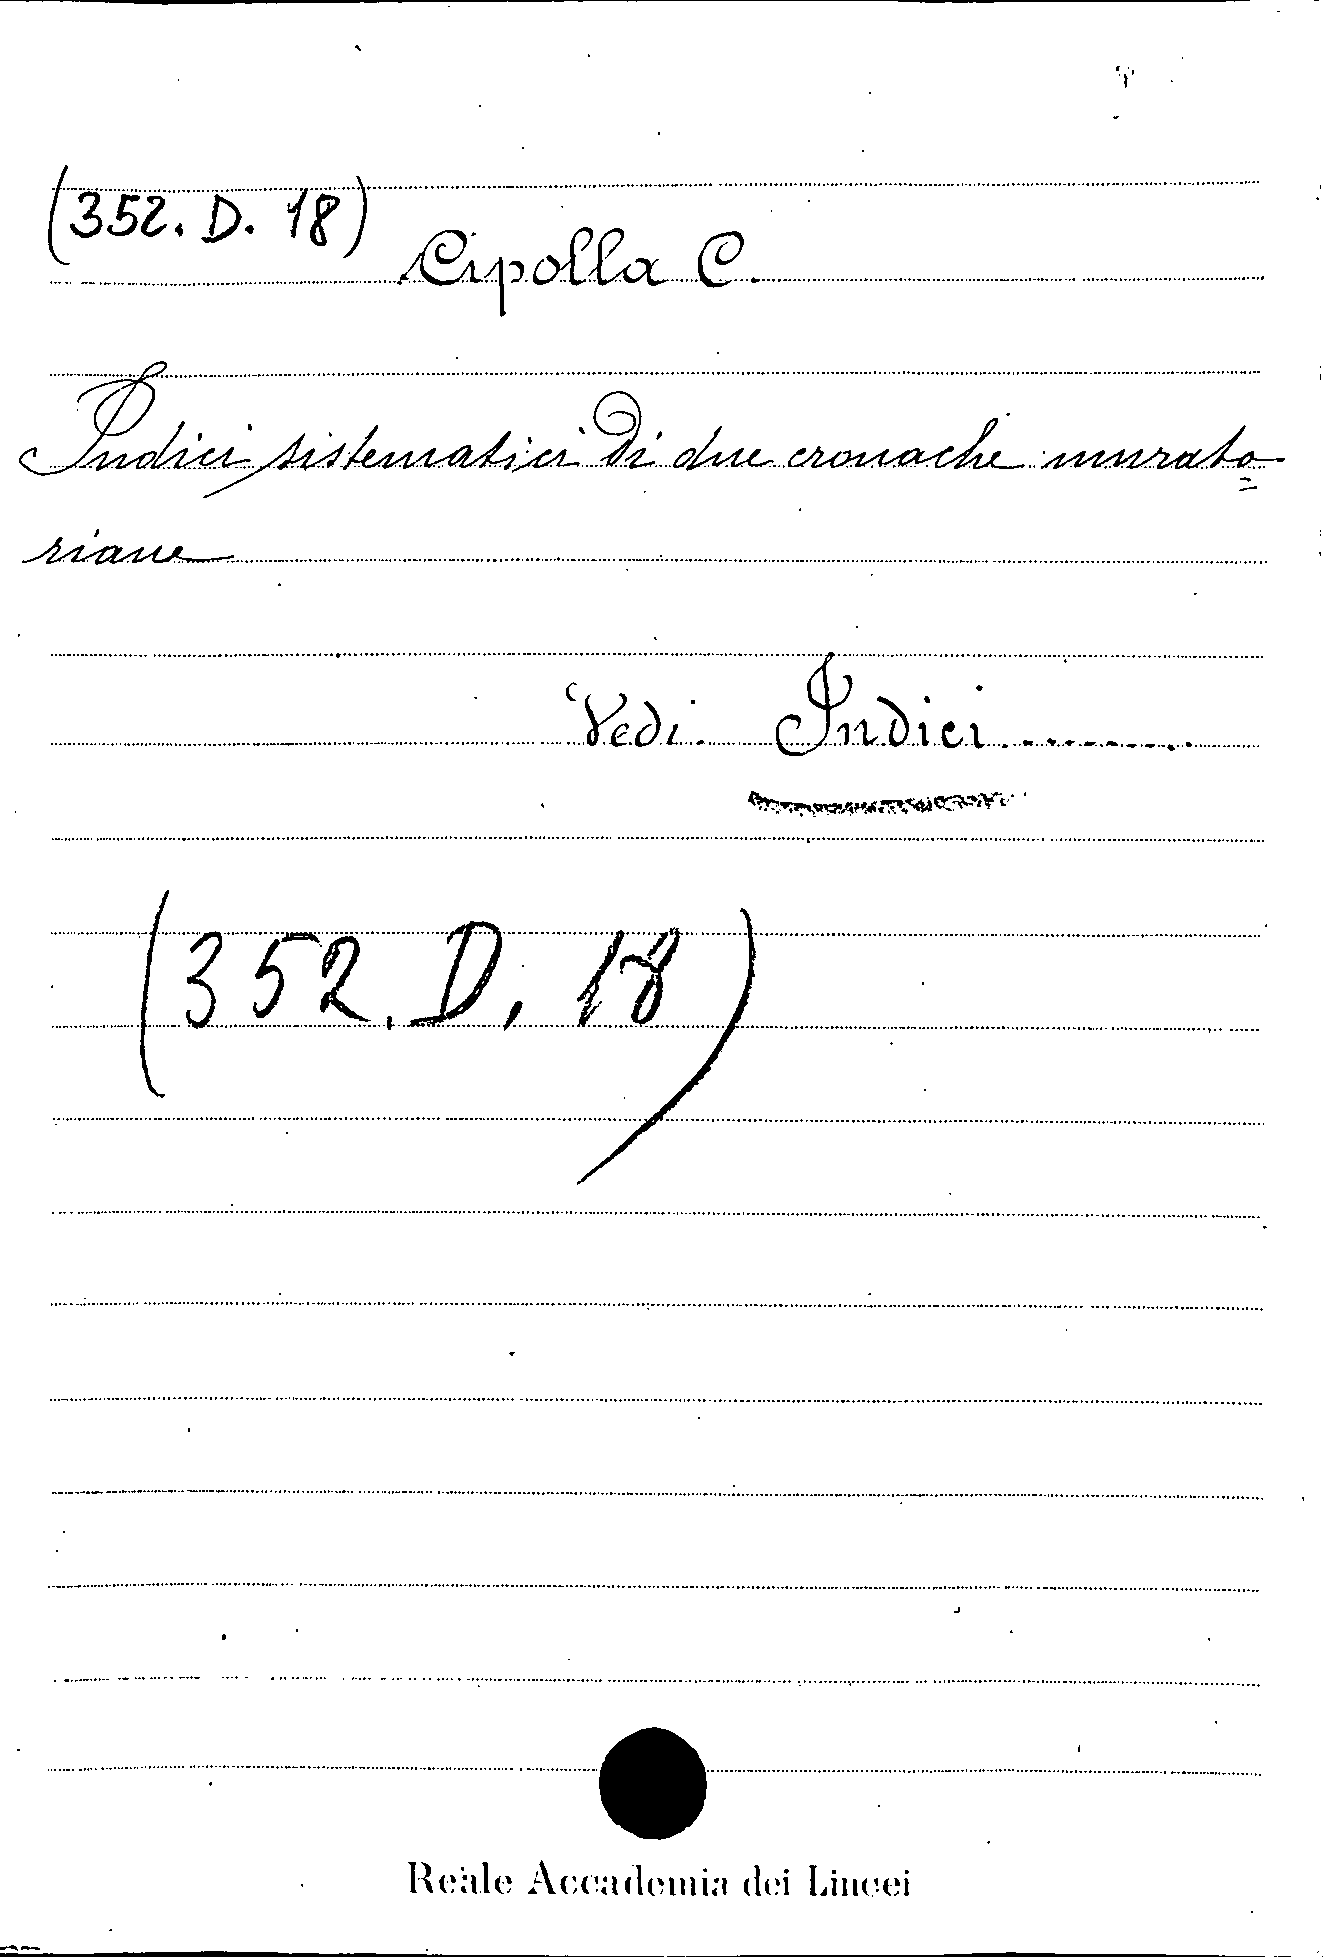 (352. D. 18)
Cipolla C.
Indici sistematici di due cronache murato=
riane
Vedi. Indici..........
(352. D. 18)
Reale Accademia dei Lincei